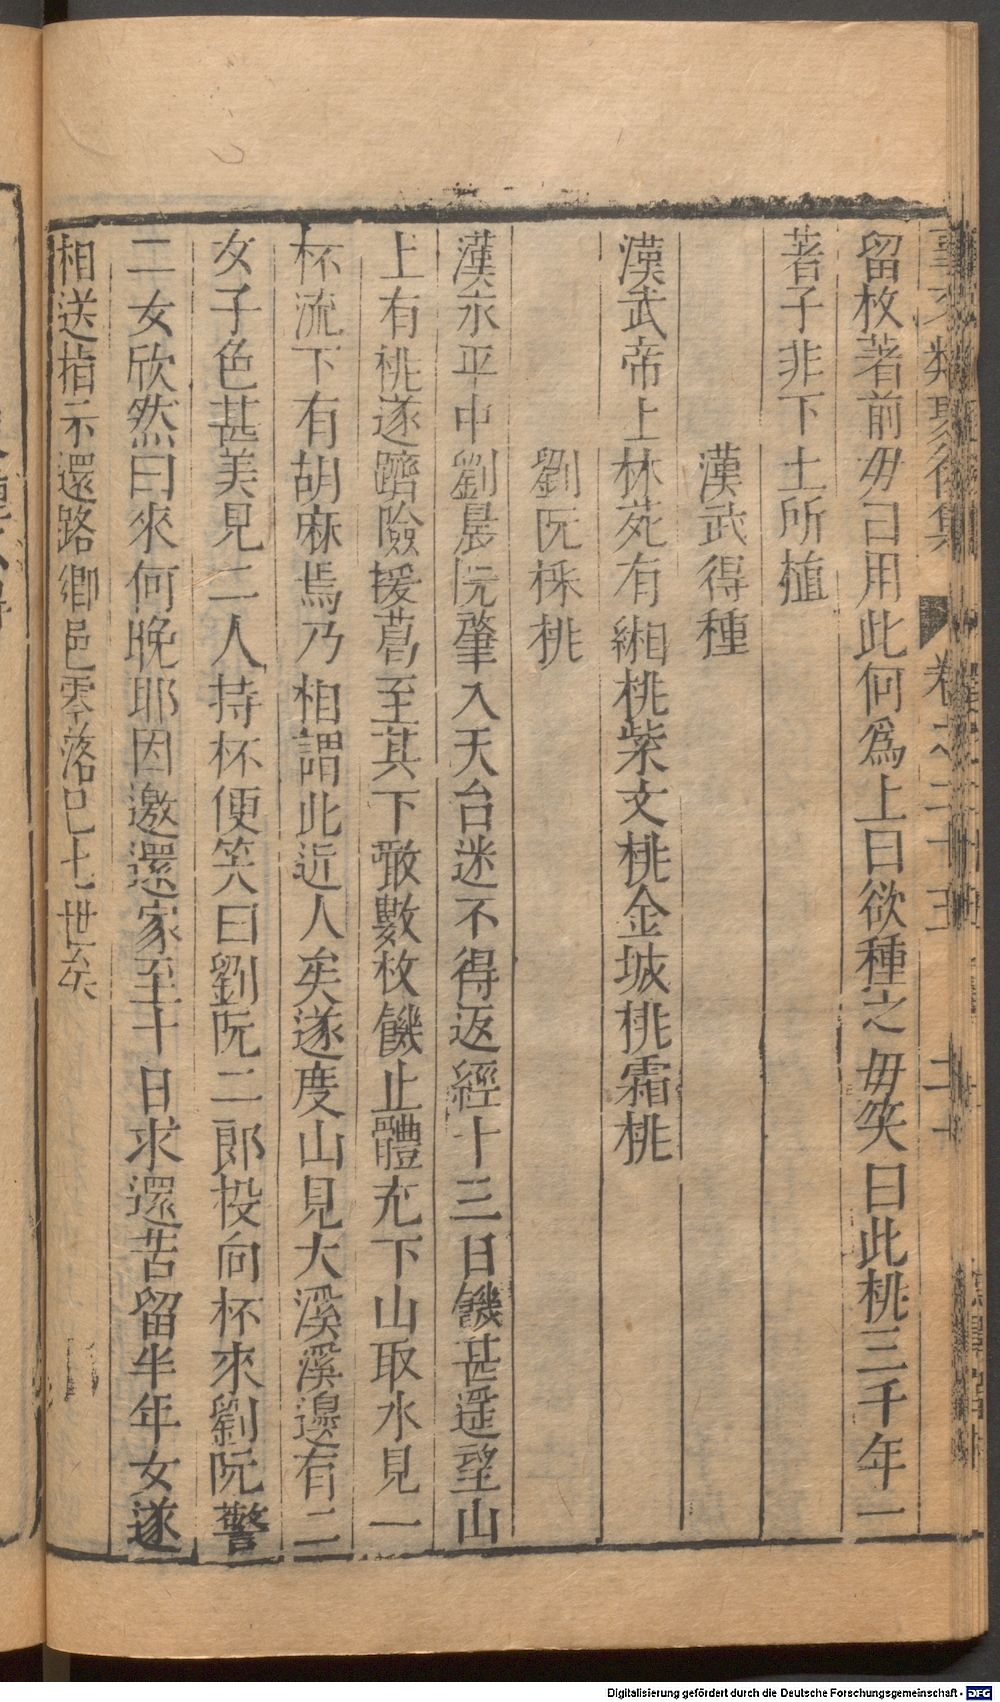 事文類聚後集 卷之二十五 二十
留枚著前毋已用此何爲上曰欲種之毋笑曰此桃三千年一
著子非下土所植
漢武得種
漢武帝上林苑有緗桃紫文桃金城桃霜桃
劉阮採桃
漢永平中劉晨阮肇入天台迷不得返經十三日饑甚遥望山
上有桃遂躋險援葛至其下噉數枚饑止體充下山取水見一
杯流下有胡麻焉乃相謂此近人矣遂度山見大溪溪邊有二
女子色甚美見二人持杯便笑曰劉阮二郎投向杯來劉阮驚
二女欣然曰來何晚耶因邀還家至十日求還苦留半年女遂
相送指示還路鄉邑零落已七世矣
Digitalisierung gefördert durch die Deutsche Forschungsgemeinschaft - DFG